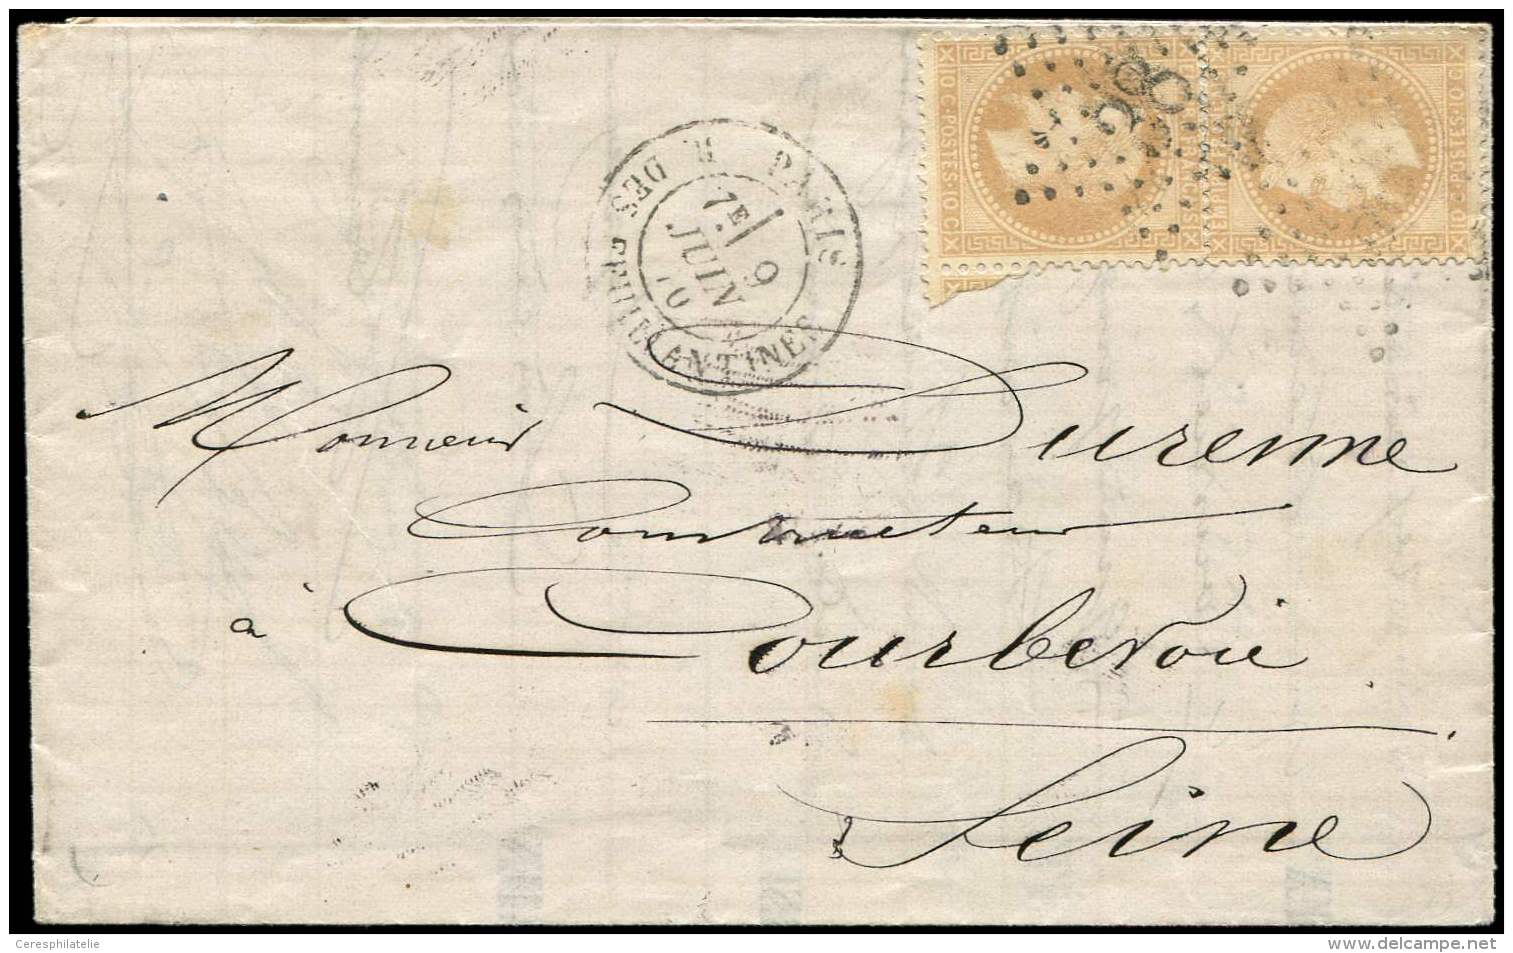 PARIS R. DES FEUILLANTINES
7E
9
JUIN
70
10 C POSTES 10 C
10 C POSTES 10 C
28
Monsieur Durenne
Constructeur
à Courbevoie
Seine
Ceresphilatelie
www.delcampe.net